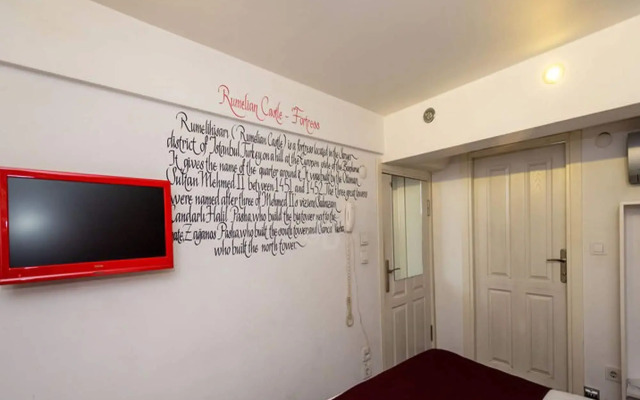 Rumelian Castle - Fortress
Rumelihisarı (Rumelian Castle) is a fortress located in the Sarıyer
district of Istanbul, Turkey, on a hill at the European side of the Bosphorus
It gives the name of the quarter around it. It was built by the Ottoman
Sultan Mehmed II between 1451 and 1452. The three great towers
were named after three of Mehmed II's viziers, Sadrazam
Çandarlı Halil Pasha, who build the big tower next to the
gate, Zağanos Pasha, who built the south tower and Sarıca Pasha
who built the north tower.